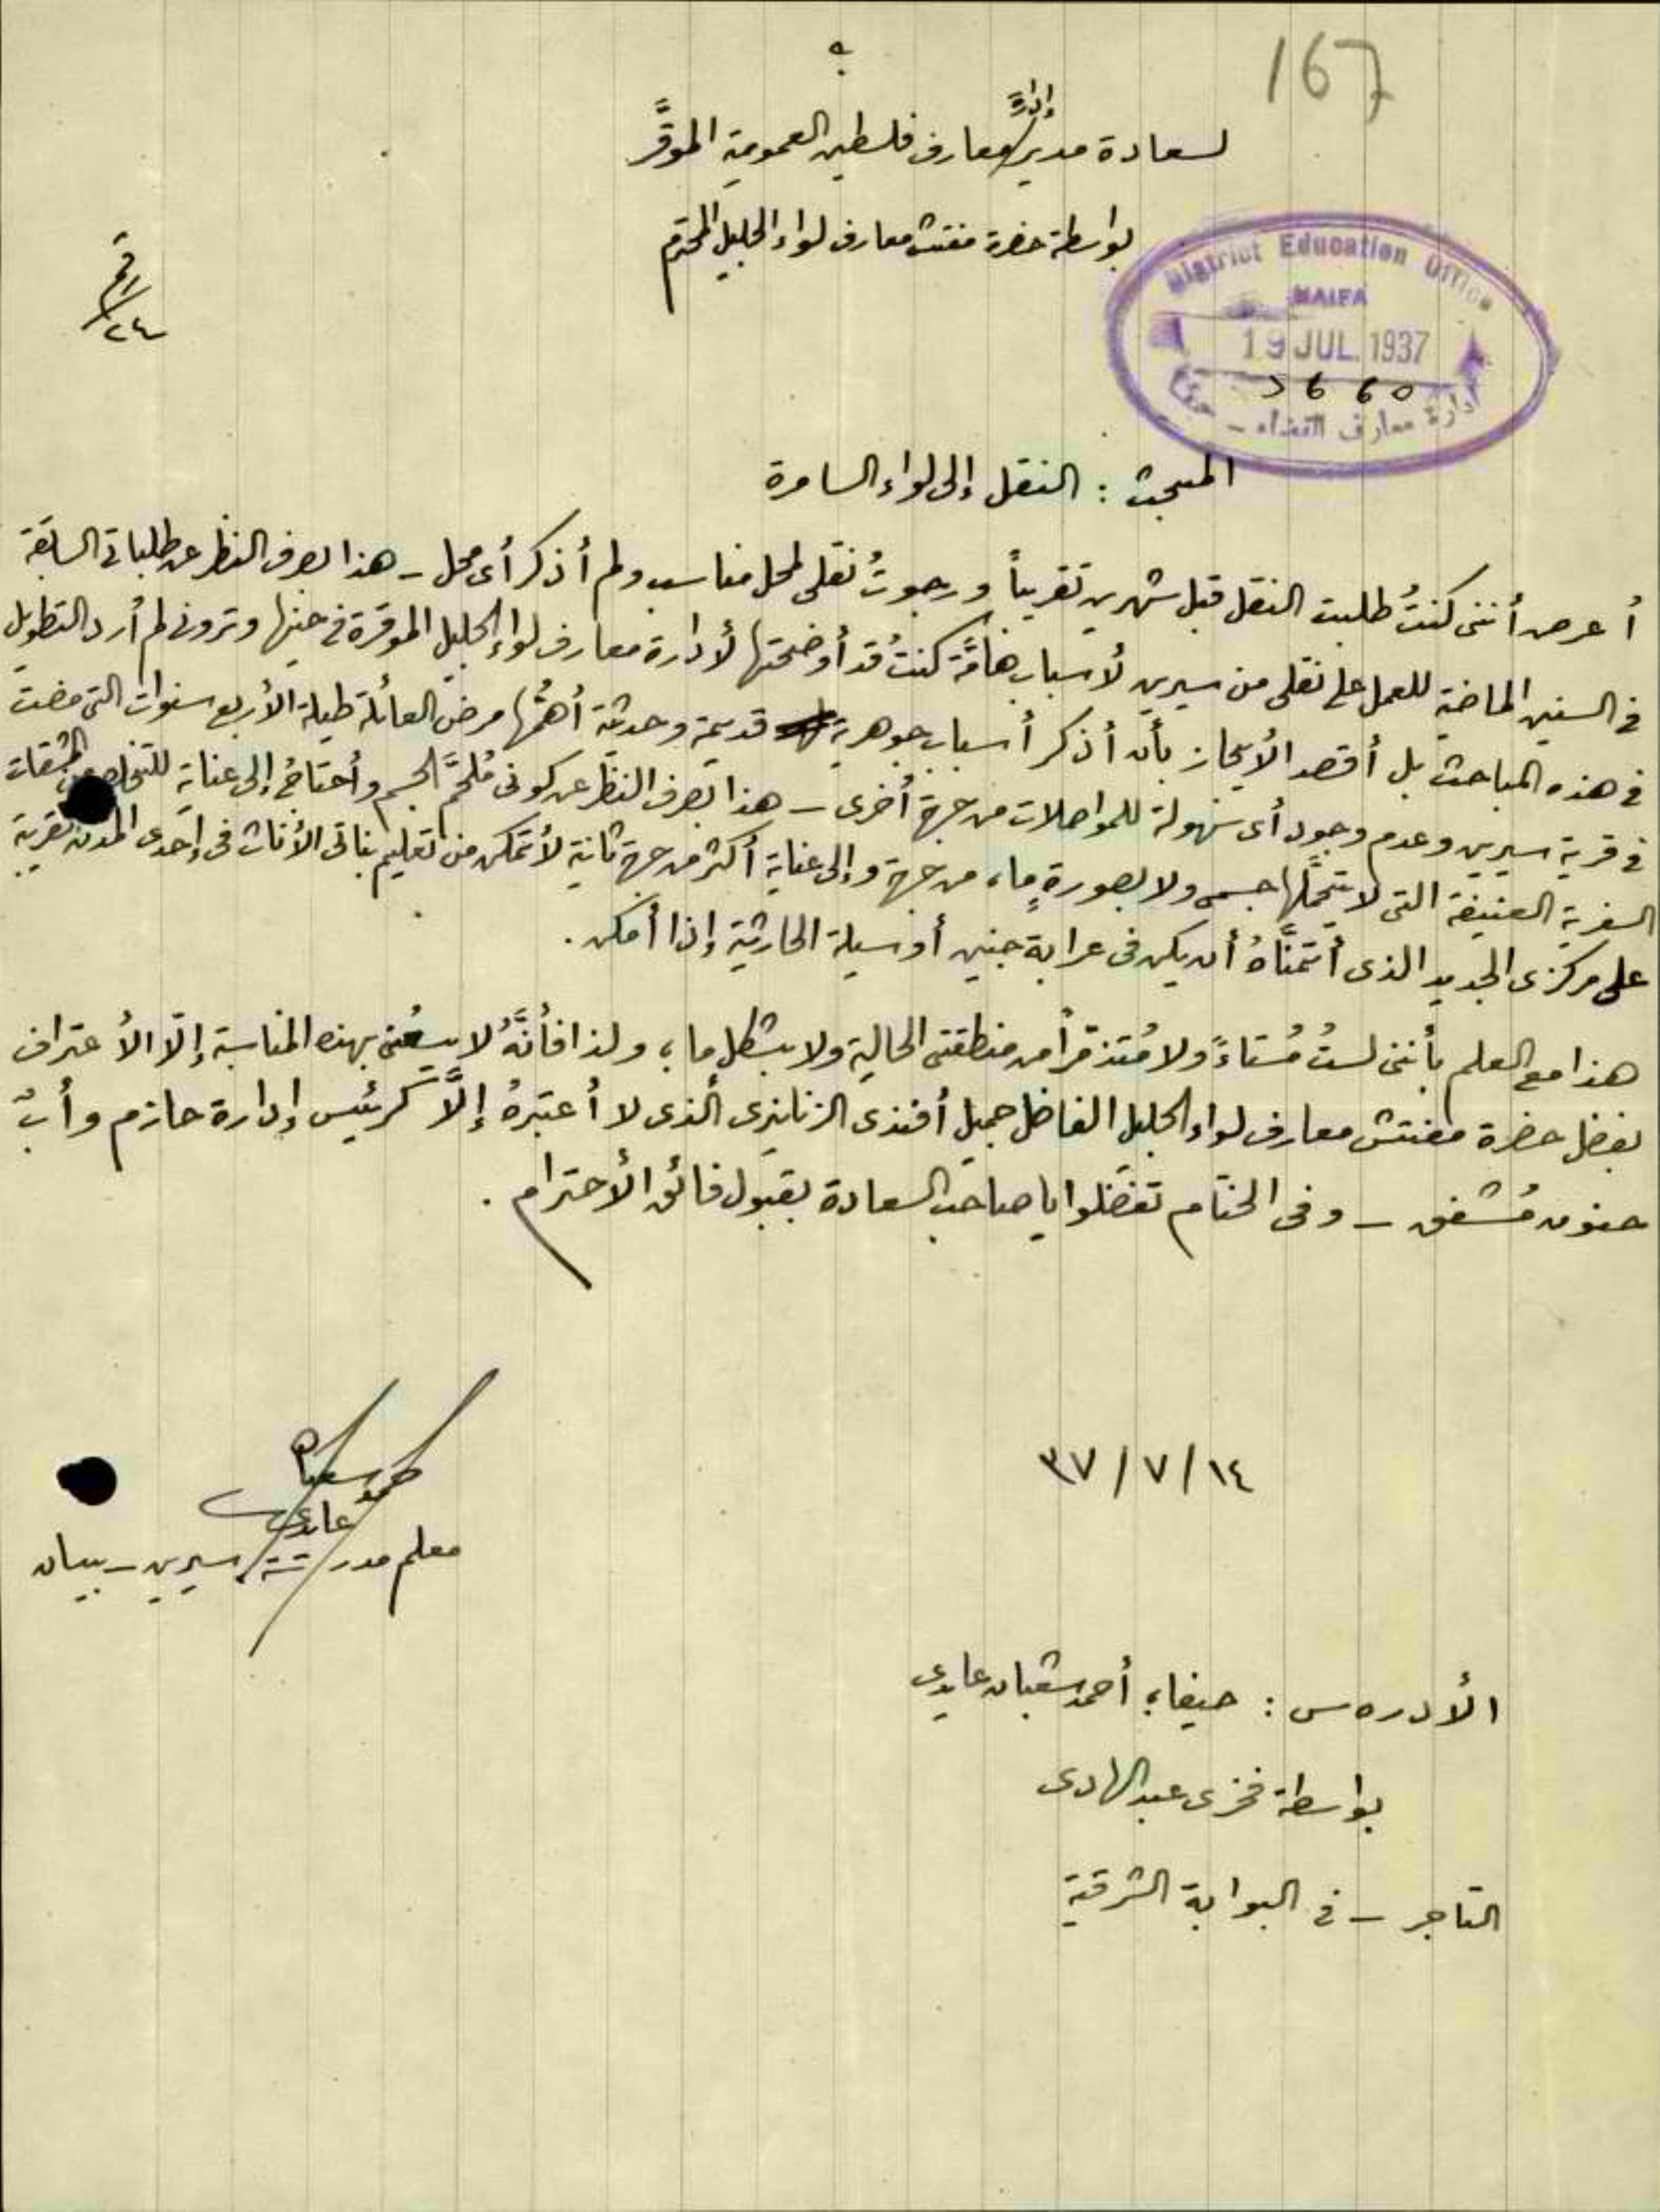 167
لسعادة مدير إدارة معارف فلسطين العمومية الموقَّر
بواسطة حضرة مفتش معارف لواء الجليل المحترم
District Education Office
HAIFA
19 JUL. 1937
إدارة معارف القضاء - حيفا
المبحث : النقل إلى لواء السامرة
أعرض أنني كنتُ طلبت النقل قبل شهرين تقريباً ورجوتُ نقلي لمحل مناسب ولم أذكر أي محل - هذا بصرف النظر عن طلباتي السابقة
في السنين الماضية للعمل على نقلي من سيرين لأسباب هامَّة كنتُ قد أوضحتها لأدارة معارف لواء الجليل الموقرة في حينها وتروني لم أرد التطويل
في هذه المباحث بل أقصد الأيجاز بأن أذكر أسباب جوهرية قديمة وحديثة أهمُّها مرض العائلة طيلة الأربع سنوات التي مضت
في قرية سيرين وعدم وجود أي سهولة للمواصلات من جهة أخرى - هذا بصرف النظر عن كوني مُلحَّم الجسم وأحتاجُ إلى عناية للتخلص من المشقات
السفرية العنيفة التي لا يتحمَّلها جسمي ولا بصورةٍ ما، من جهة وإلى عناية أكثر من جهة ثانية لأتمكن من تعليم بناتي الأناث في إحدى المدن القريبة
على مركزي الجديد الذي أتمنَّاهُ أن يكن في عرابة جنين أو سيلة الحارثية إذا أمكن .
هذا مع العلم بأنني لستُ مُستاءً ولا مُتذمّراً من منطقتي الحالية ولا بشكل ما، ولذا فأنَّهُ لا يسعُني بهذه المناسبة إلّا الأعتراف
بفضل حضرة مفتش معارف لواء الجليل الفاضل جميل أفندي الزنانيري الذي لا أعتبرهُ إلَّا كرئيس إدارة حازم وأبٌ
حنون مُشفق - وفي الختام تفضلوا يا صاحب السعادة بقبول فائق الأحترام .
١٤ / ٧ / ٣٧
أحمد شعبان
عايدي
معلم مدرسة سيرين - بيسان
الأدرەس : حيفا، أحمد شعبان عايدي
بواسطة فخري عبد الهادي
التاجر - في البوابة الشرقية